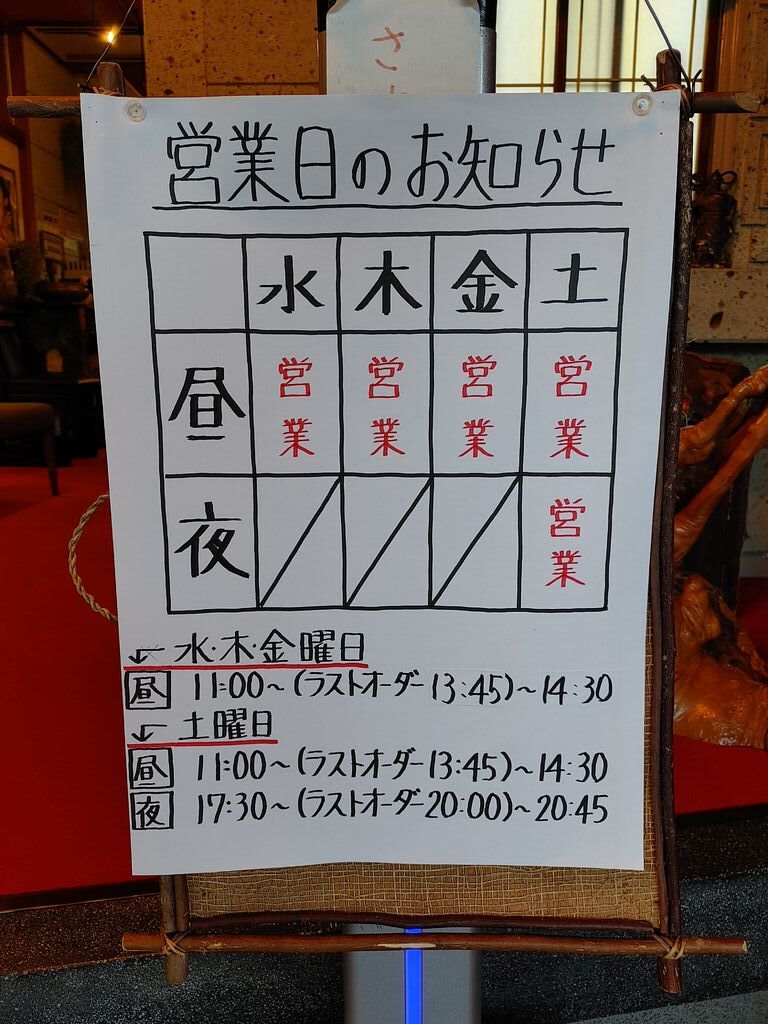 さ
営業日のお知らせ
水 木 金 土
昼 営業 営業 営業 営業
夜 営業
水・木・金曜日
昼 11:00~(ラストオーダー13:45)~14:30
土曜日
昼 11:00~(ラストオーダー13:45)~14:30
夜 17:30~(ラストオーダー20:00)~20:45